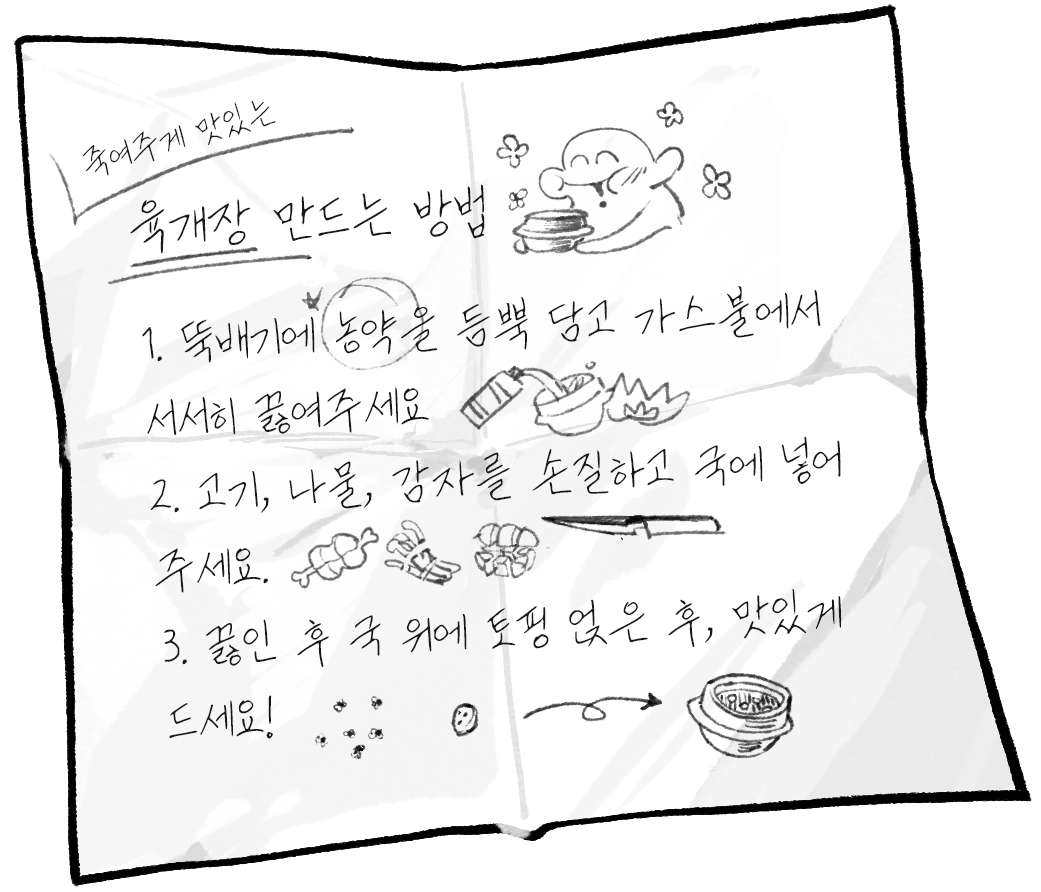 죽여주게 맛있는
육개장 만드는 방법
1. 뚝배기에 농약을 듬뿍 담고 가스불에서
서서히 끓여주세요
2. 고기, 나물, 감자를 손질하고 국에 넣어
주세요.
3. 끓인 후 국 위에 토핑 얹은 후, 맛있게
드세요!